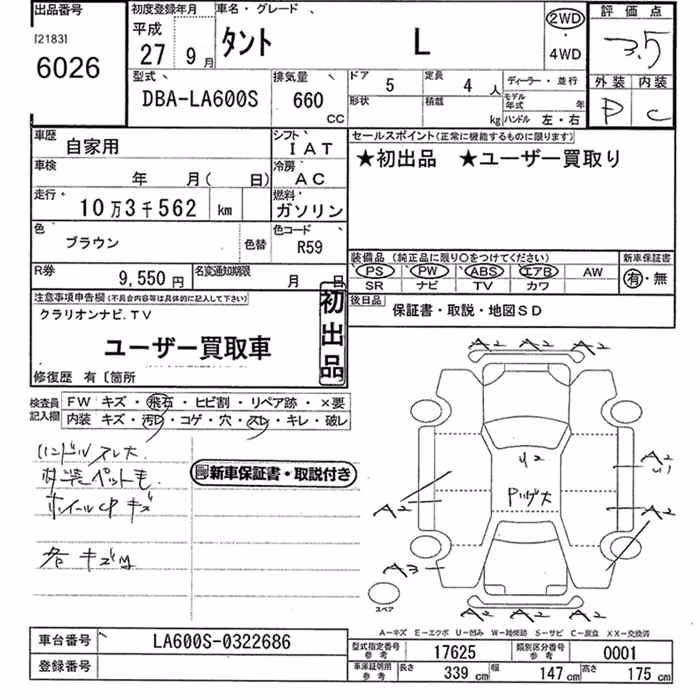 出品番号 初度登録年月 車名・グレード 評価点
[2183] 平成 2WD 3.5
6026 27 9月 タント L ・
4WD
型式 排気量 ドア 5 定員 4人 ディーラー・並行 外装 内装
DBA-LA600S 660 CC 形状 積載 kg モデル年式 年 D C
ハンドル 左・右
車歴 自家用 シフト IAT セールスポイント(正常に機能するものに限ります)
車検 年 月( 日) 冷房 AC ★初出品 ★ユーザー買取り
走行 10万3千562 km 燃料 ガソリン
色 ブラウン 色替 色コード R59
装備品(純正品に限り○をつけてください) 新車保証書
PS PW ABS エアB AW 有・無
SR ナビ TV カワ
R券 9,550円 名変通知期限 月 日
後日品 保証書・取説・地図SD
注意事項申告欄(不具合内容等は具体的に記入して下さい)
クラリオンナビ.TV
ユーザー買取車
初出品
修復歴 有〔箇所
検査員記入欄 FW キズ・飛石・ヒビ割・リペア跡・×要
内装 キズ・汚レ・コゲ・穴・スレ・キレ・破レ
ハンドルスレ大
内装ペットモ
ホイールCPキズ
各キズM
新車保証書・取説付き
A2 A2 A2
U2
A2
U1
Pハゲ大
A2 A2
A3
A2 A2 A2
スペア
A-キズ E-エクボ U-凹み W-補修跡 S-サビ C-腐食 XX-交換済
車台番号 LA600S-0322686
登録番号
型式指定番号 参考 17625 類別区分番号 参考 0001
車庫証明用 参考 長さ 339 cm 幅 147 cm 高さ 175 cm